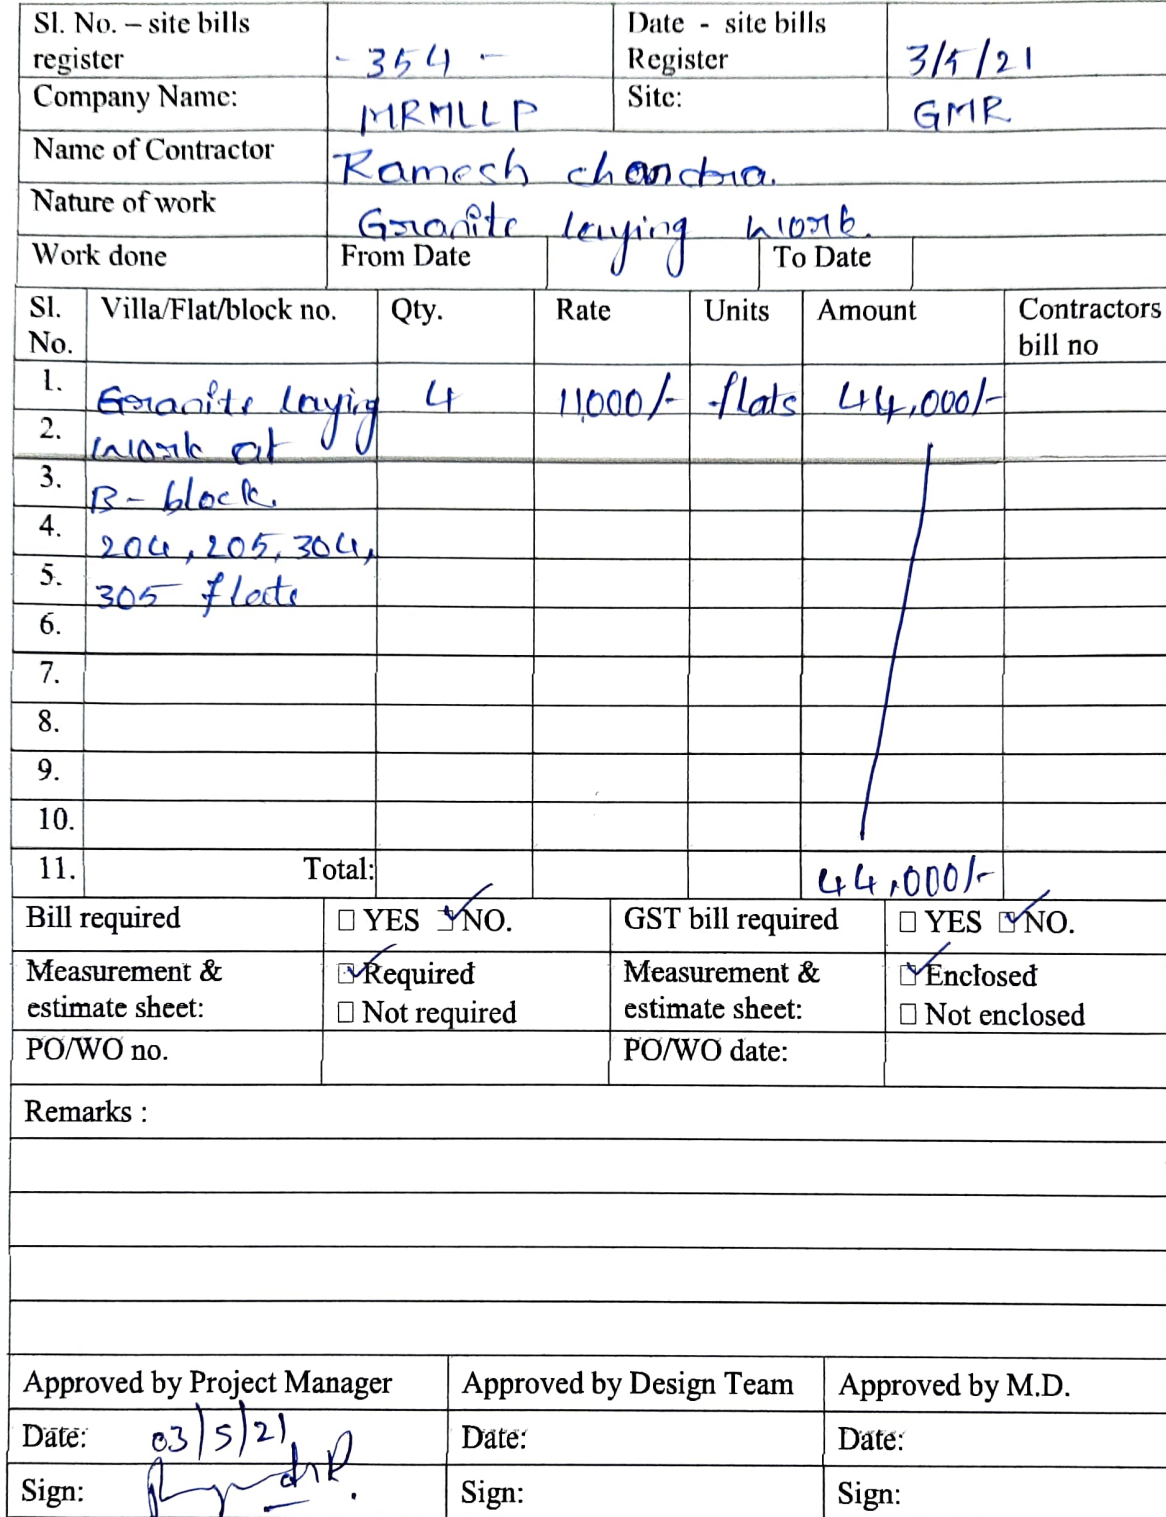 Sl. No. – site bills register - 354 - Date - site bills Register 3/5/21
Company Name: MRMLLP Site: GMR
Name of Contractor Ramesh chandra.
Nature of work Granite laying work.
Work done From Date To Date
Sl. No. Villa/Flat/block no. Qty. Rate Units Amount Contractors bill no
1. Granite layig 4 11,000/- flats 44,000/-
2. work at
3. B-block.
4. 204, 205, 304,
5. 305 flats
6.
7.
8.
9.
10.
11. Total: 44,000/-
Bill required □ YES ☑ NO. GST bill required □ YES ☑ NO.
Measurement & estimate sheet: ☑ Required □ Not required Measurement & estimate sheet: ☑ Enclosed □ Not enclosed
PO/WO no. PO/WO date:
Remarks :
Approved by Project Manager Approved by Design Team Approved by M.D.
Date: 03/5/21 Date: Date:
Sign: Sign: Sign: